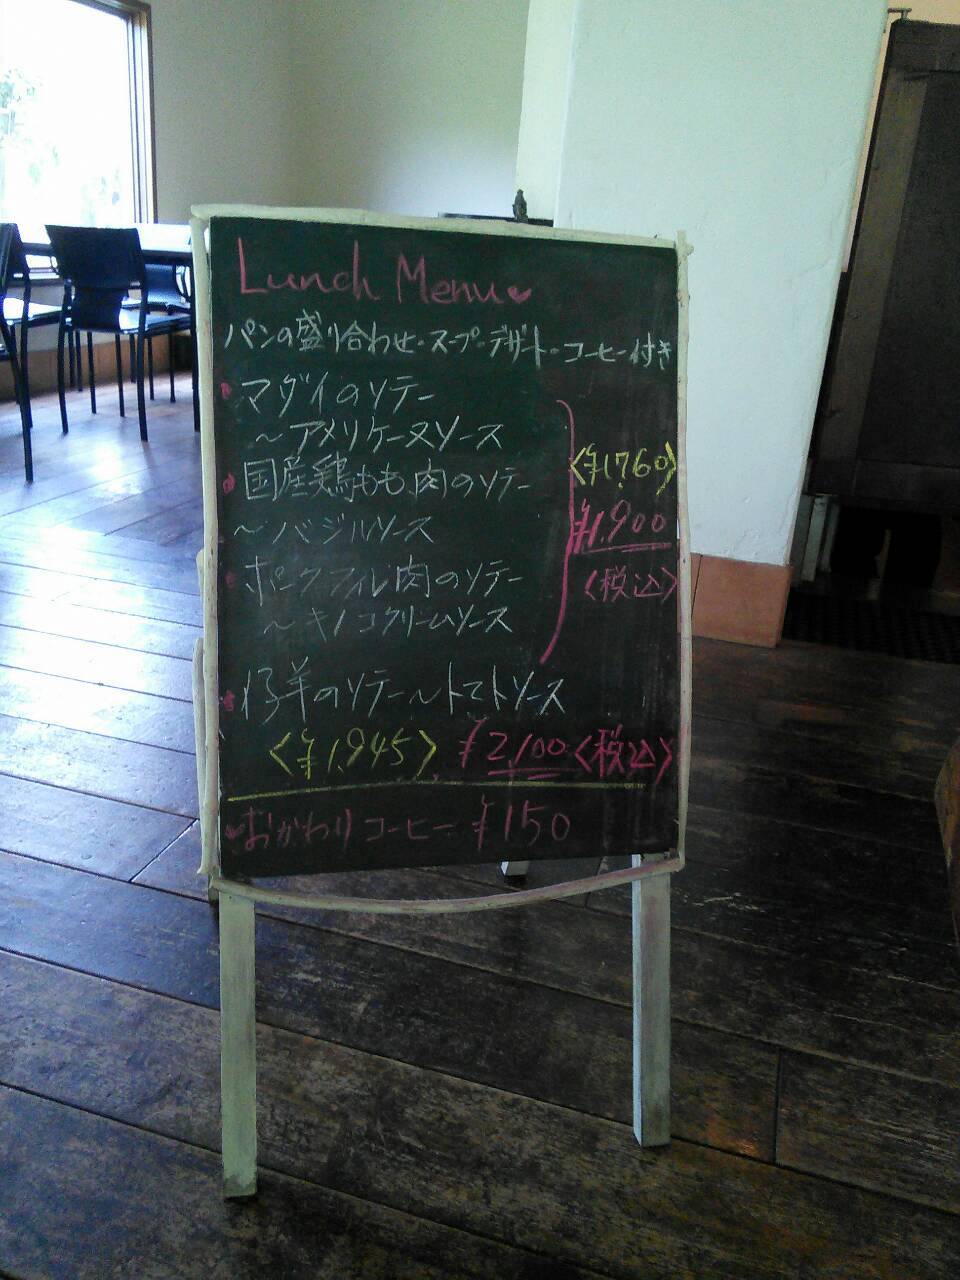 Lunch Menu♥
パンの盛り合わせ・スープ・デザート・コーヒー付き
・マダイのソテー
～アメリケーヌソース
・国産鶏もも肉のソテー
～バジルソース
・ポークフィレ肉のソテー
～キノコクリームソース
<¥1,760>
¥1,900
<税込>
・仔羊のソテー～トマトソース
<¥1,945> ¥2,100<税込>
♥おかわりコーヒー ¥150